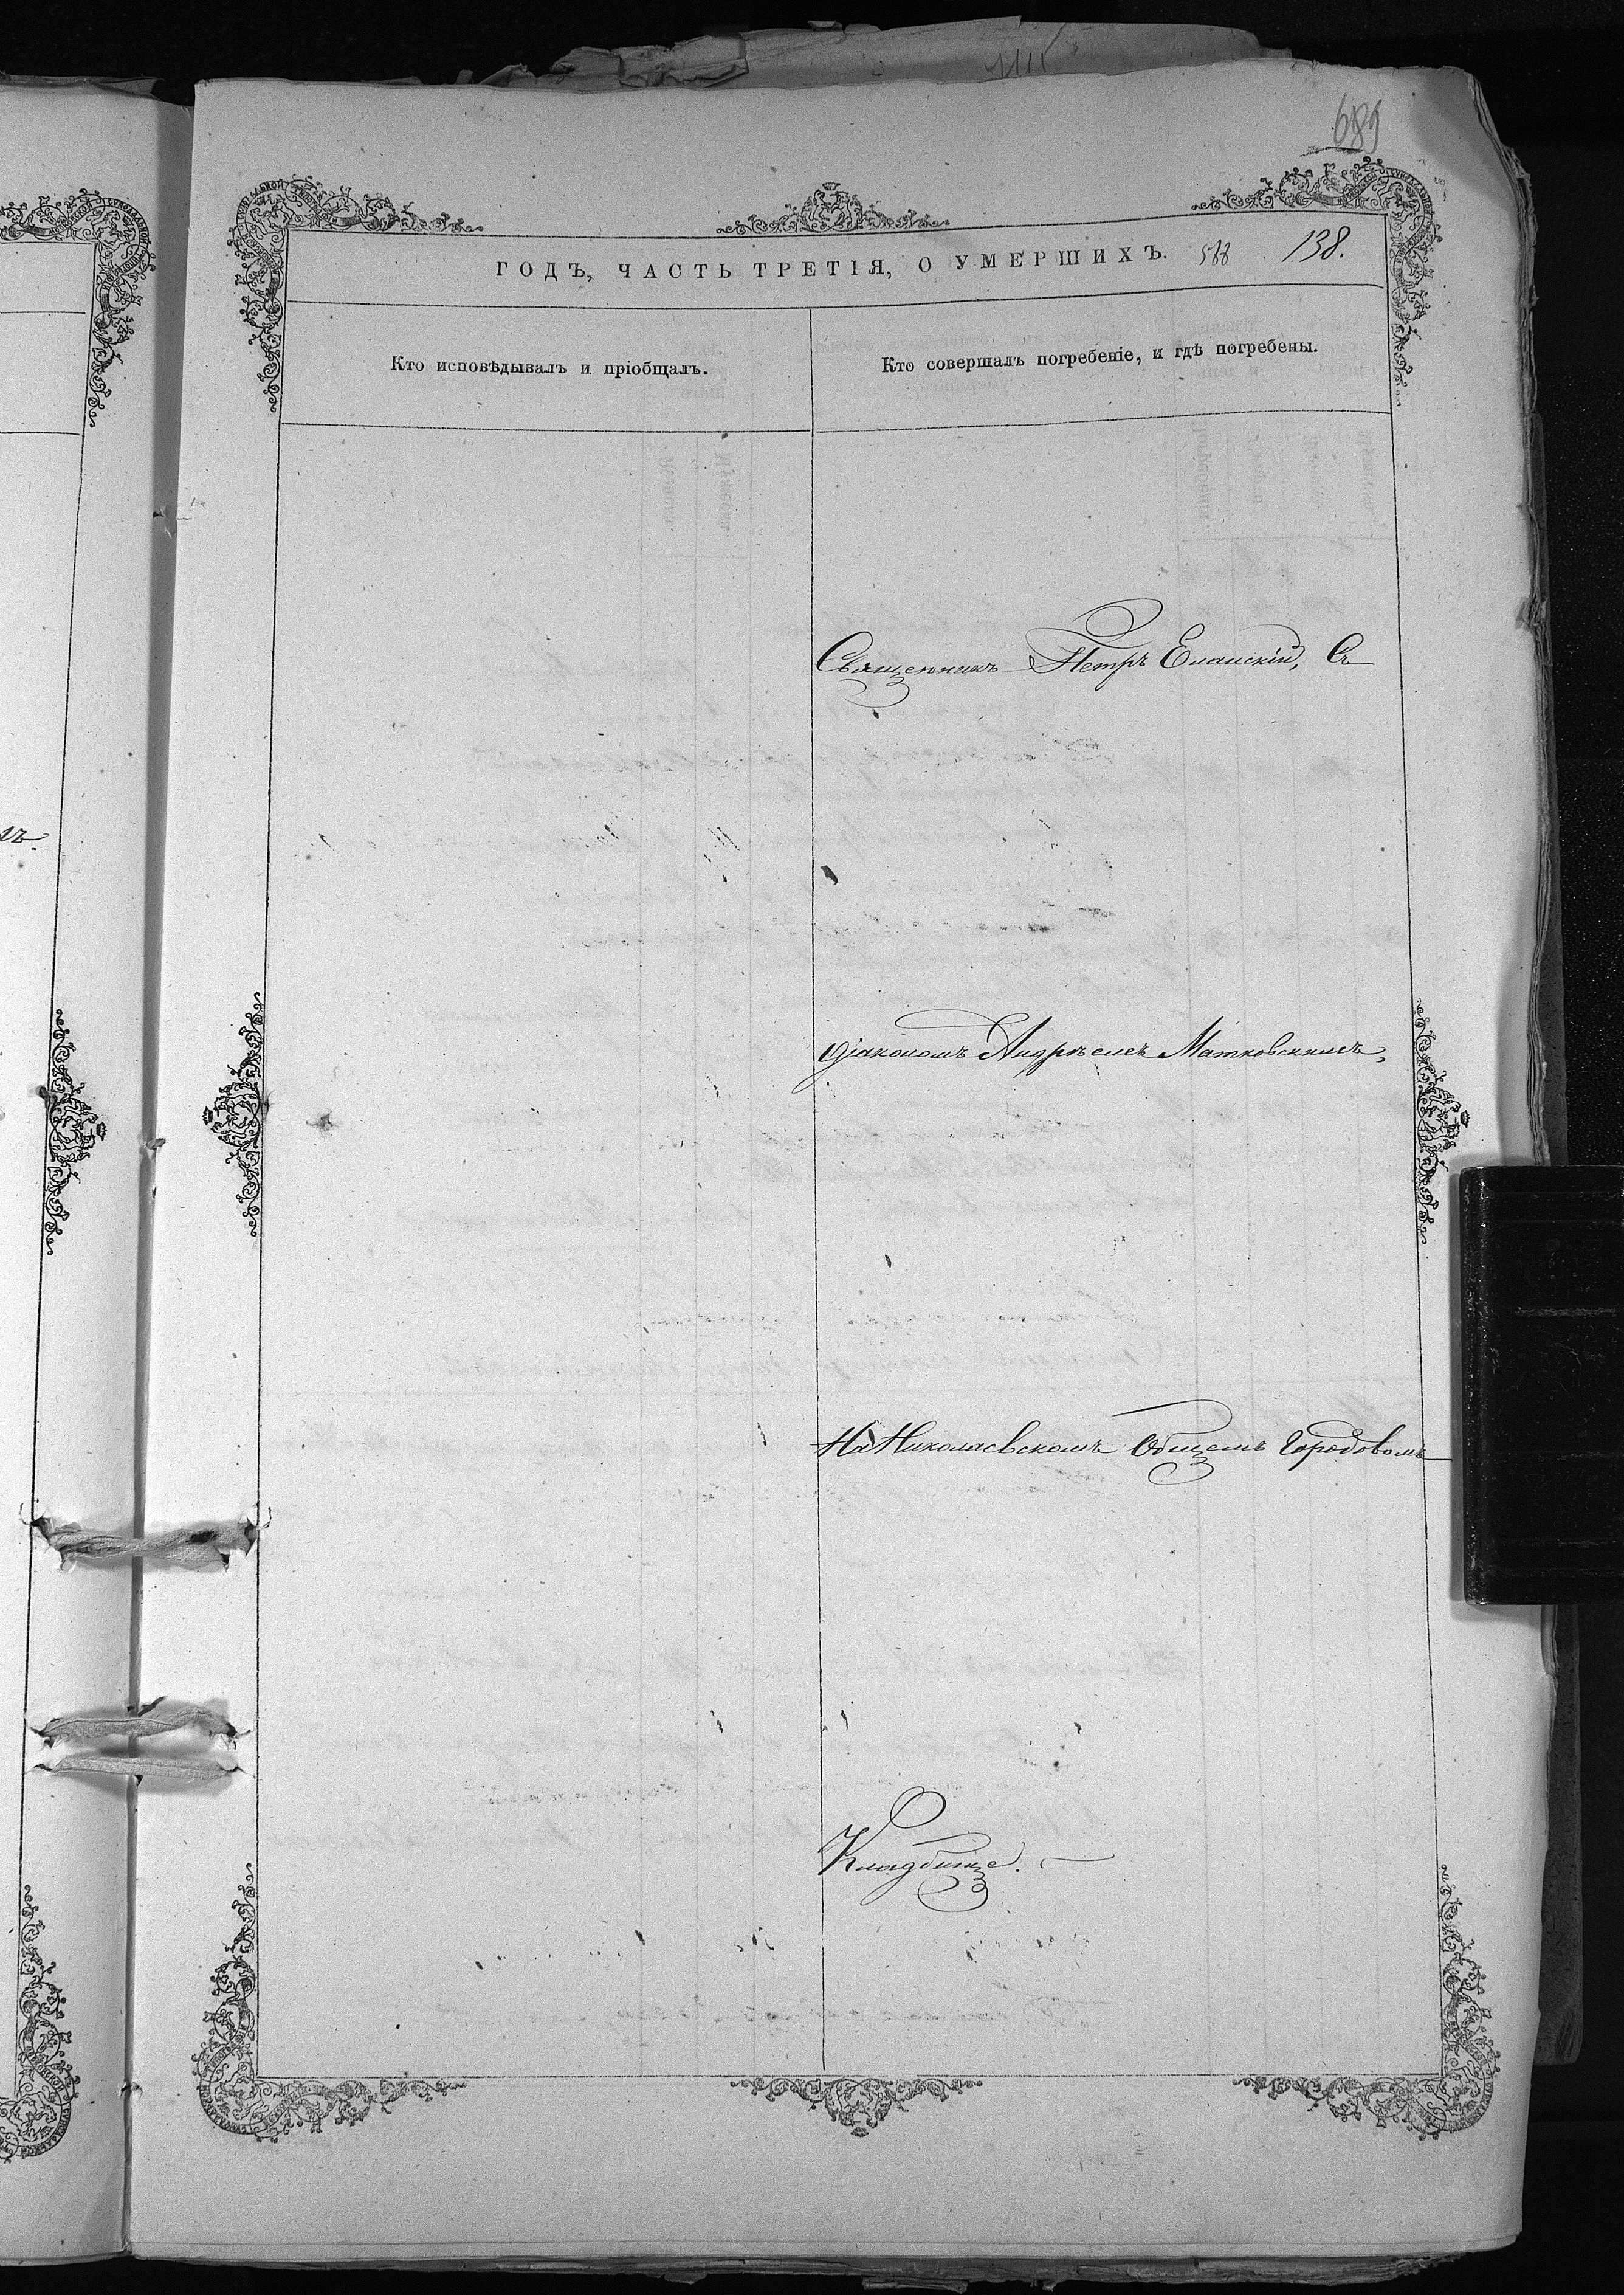 689
ГОДЪ, ЧАСТЬ ТРЕТІЯ, О УМЕРШИХЪ. 588 138.
Кто исповѣдывалъ и пріобщалъ.
Кто совершалъ погребеніе, и гдѣ погребены.
Священникъ Петръ Еланскій, Съ
діакономъ Андреемъ Матковскимъ,
На Николаевскомъ Общемъ Городовомъ
Кладбище.